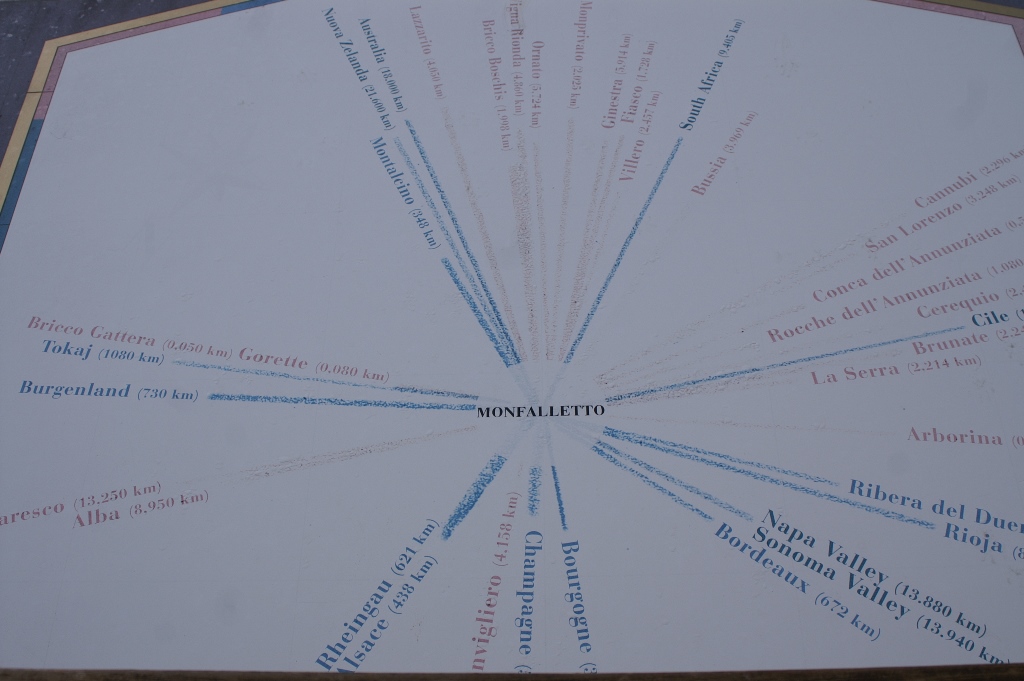 Nuova Zelanda (21,600 km)
Australia (18,000 km)
Montalcino (348 km)
Lazzarito (4,050 km)
Bricco Boschis (1,998 km)
Rionda (4,860 km)
Ornato (5,724 km)
Monprivato (2,025 km)
Ginestra (5,914 km)
Fiasco (1,728 km)
Villero (2,457 km)
South Africa (9,485 km)
Bussia (3,969 km)
Cannubi (2,296 km
San Lorenzo (3,248 km)
Conca dell'Annunziata (0,
Rocche dell'Annunziata (1,080
Cerequio (2,
Cile (
Brunate (2,2
La Serra (2,214 km)
Arborina (0
Bricco Gattera (0,050 km)
Gorette (0,080 km)
Tokaj (1080 km)
Burgenland (730 km)
MONFALLETTO
(13,250 km)
Alba (8,950 km)
Rheingau (621 km)
Alsace (438 km)
(4,158 km)
Champagne (
Bourgogne (
Ribera del Duer
Rioja (8
Napa Valley (13.880 km)
Sonoma Valley (13.940 km)
Bordeaux (672 km)